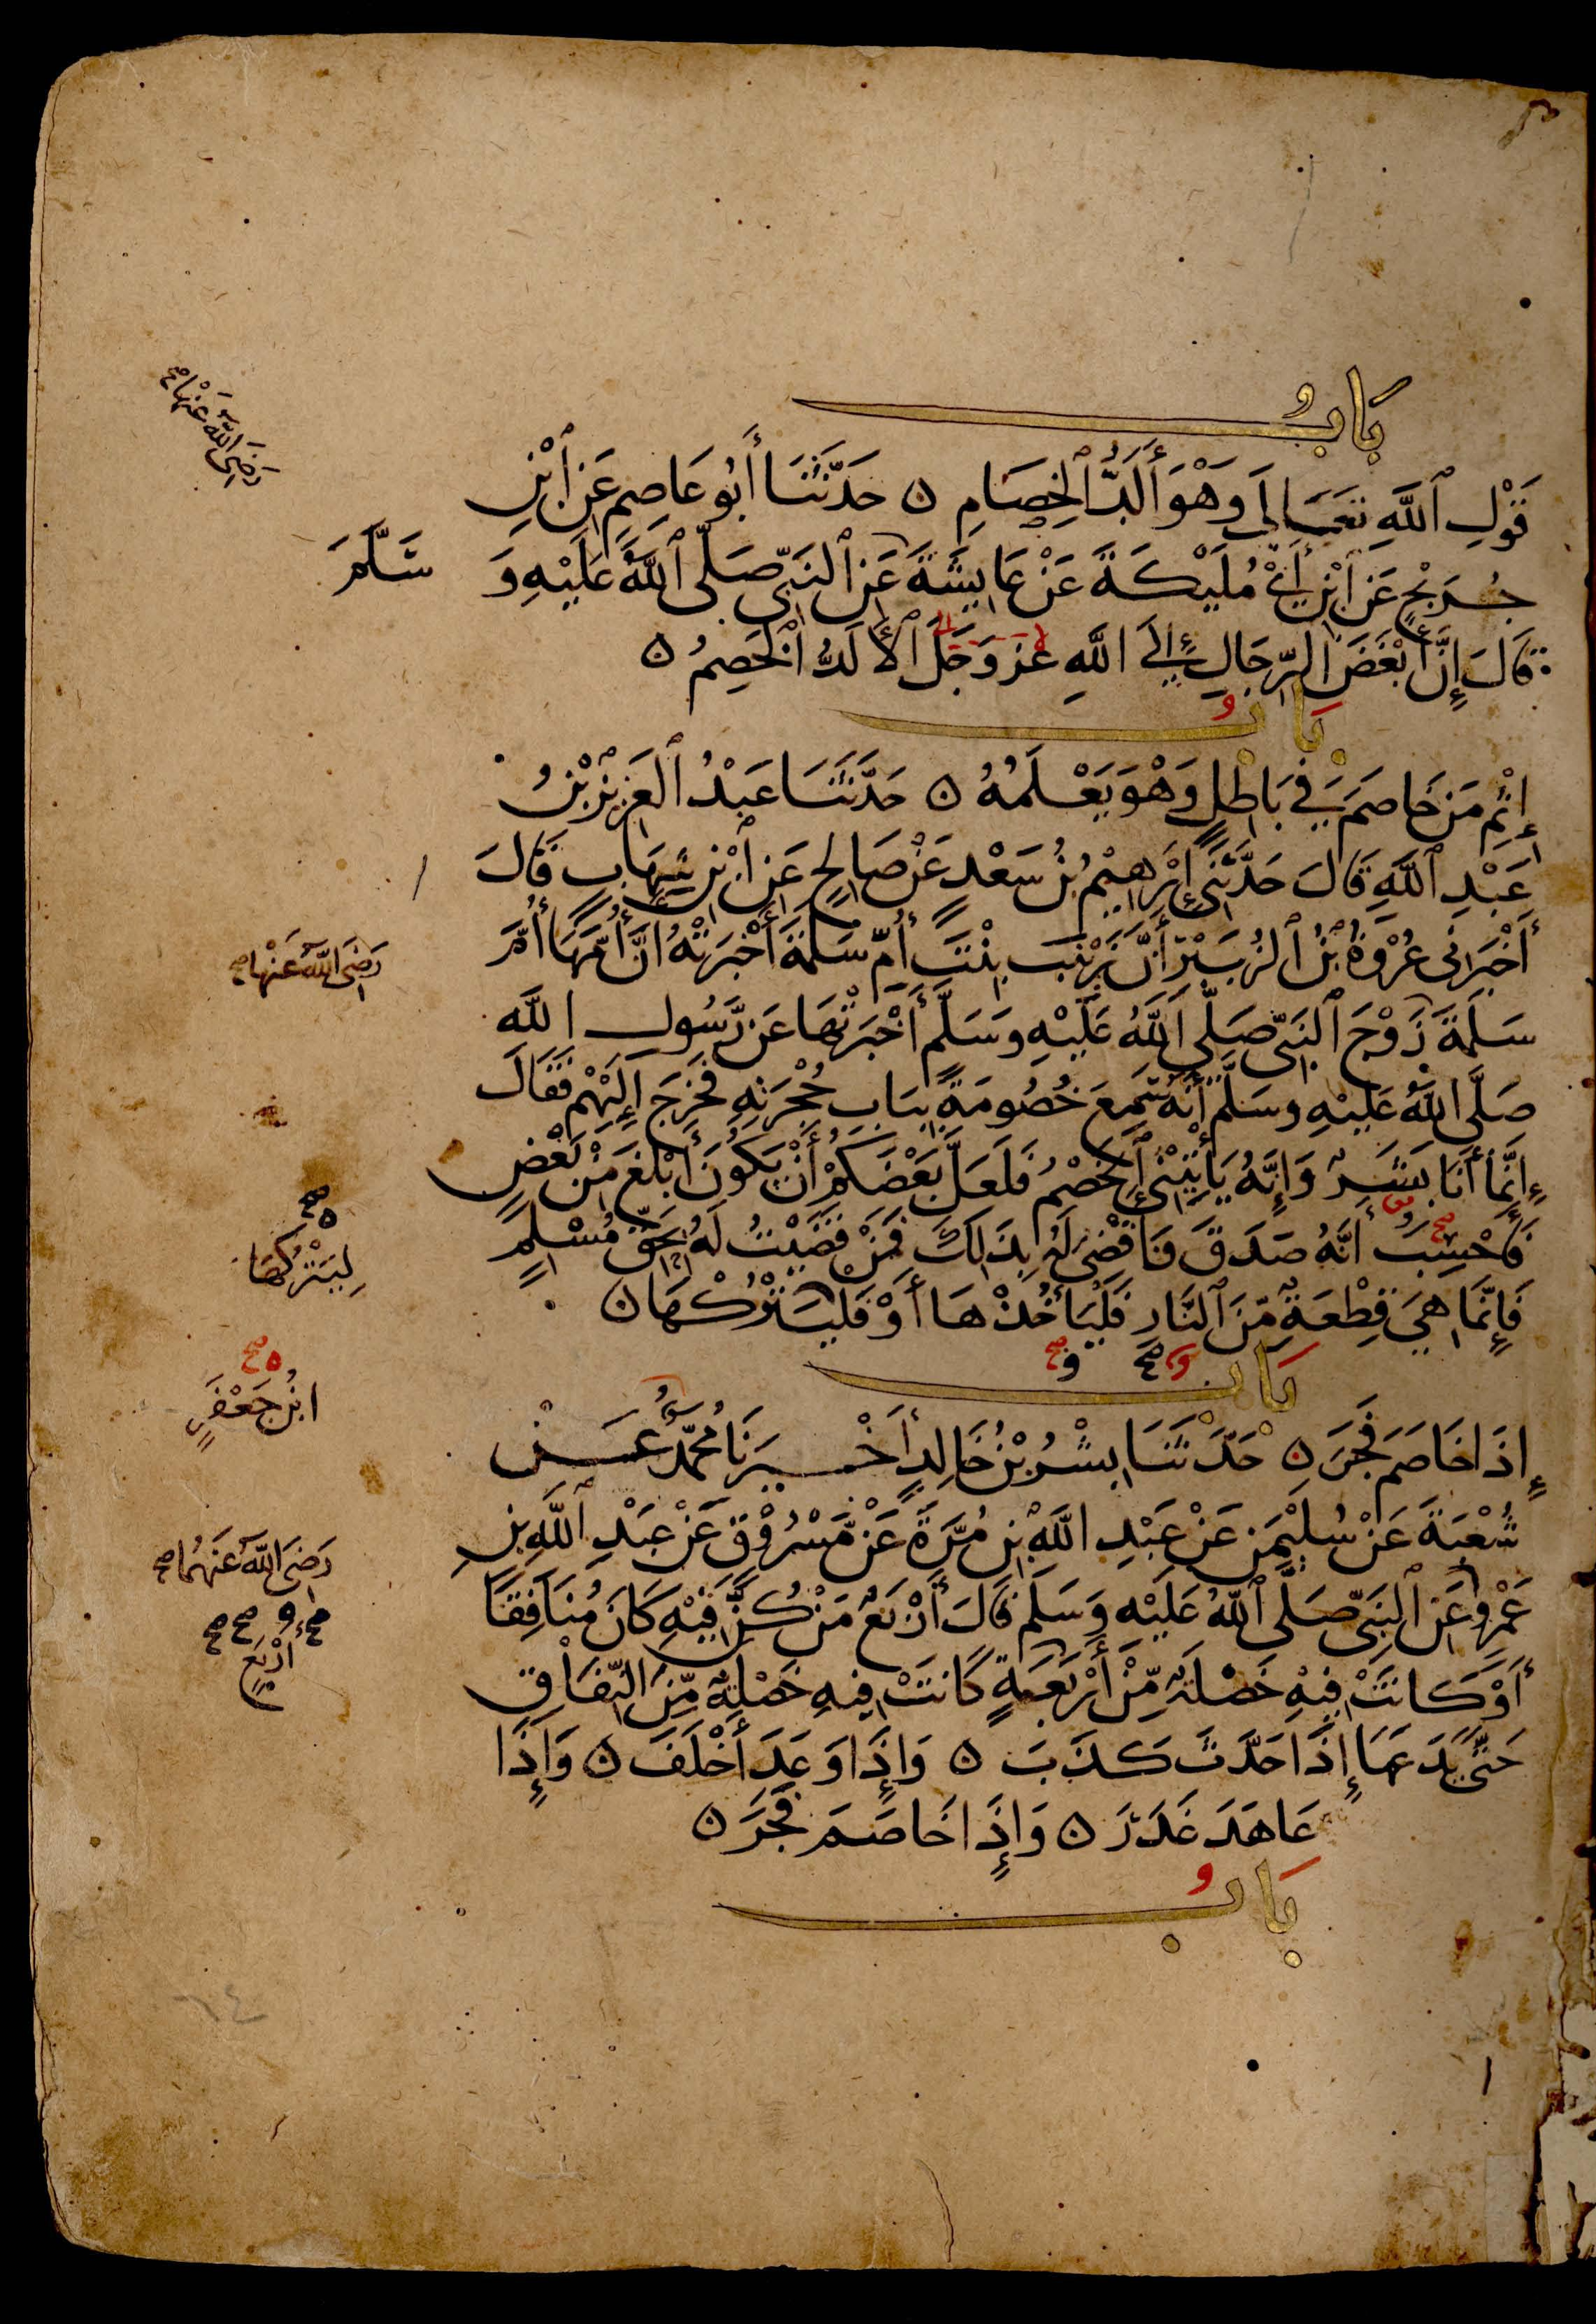 بَابُ
قَوْلِ ٱللَّهِ تَعَالَى وَهْوَ أَلَدُّ ٱلْخِصَامِ ۝ حَدَّثَنَا أَبُو عَاصِمٍ عَنِ ٱبْنِ
جُرَيْجٍ عَنِ ٱبْنِ أَبِي مُلَيْكَةَ عَنْ عَايِشَةَ عَنِ ٱلنَّبِيِّ صَلَّى ٱللَّهُ عَلَيْهِ وَ سَلَّمَ
رَضِيَ اللَّهُ عَنْهَا صح
قَالَ إِنَّ أَبْغَضَ ٱلرِّجَالِ إِلَى اللَّهِ عَزَّ وَجَلَّ ٱلْأَلَدُّ ٱلْخَصِمُ ۝
بَابُ
إِثْمِ مَنْ خَاصَمَ فِي بَاطِلٍ وَهْوَ يَعْلَمُهُ ۝ حَدَّثَنَا عَبْدُ ٱلْعَزِيزِ بْنُ
عَبْدِ ٱللَّهِ قَالَ حَدَّثَنِي إِبْرَهِيمُ بْنُ سَعْدٍ عَنْ صَالِحٍ عَنِ ٱبْنِ شِهَابٍ قَالَ
أَخْبَرَنِي عُرْوَةُ بْنُ ٱلزُّبَيْرِ أَنَّ زَيْنَبَ بِنْتَ أُمِّ سَلَمَةَ أَخْبَرَتْهُ أَنَّ أُمَّهَا أُمَّ
رَضِيَ اللَّهُ عَنْهَا صح
سَلَمَةَ زَوْجَ ٱلنَّبِيِّ صَلَّى اللَّهُ عَلَيْهِ وَسَلَّمَ أَخْبَرَتْهَا عَنْ رَّسُولِ اللَّهِ
صَلَّى اللَّهُ عَلَيْهِ وسَلَّمَ أَنَّهُ سَمِعَ خُصُومَةً بِبَابِ حُجْرَتِهِ فَخَرَجَ إِلَيْهِمْ فَقَالَ
إِنَّمَا أَنَا بَشَرٌ وَإِنَّهُ يَأْتِينِي ٱلْخَصْمُ فَلَعَلَّ بَعْضَكُمْ أَنْ يَكُونَ أَبْلَغَ مِنْ بَعْضٍ
فَأَحْسِبُ أَنَّهُ صَدَقَ فَأَقْضِي لَهُ بِذَلِكَ فَمَنْ قَضَيْتُ لَهُ بِحَقِّ مُسْلِمٍ
فَإِنَّمَا هِيَ قِطْعَةٌ مِّنَ ٱلنَّارِ فَلْيَأْخُذْهَا أَوْ فَلْيَتْرُكْهَا ۝
ه صح
لِيَتْرُكْهَا
بَابُ
إِذَا خَاصَمَ فَجَرَ ۝ حَدَّثَنَا بِشْرُ بْنُ خَالِدٍ أَخْبَرَنَا مُحَمَّدٌ عَنْ
ه صح
ابْنُ جَعْفَرٍ
شُعْبَةَ عَنْ سُلَيْمَنَ عَنْ عَبْدِ اللَّهِ بْنِ مُرَّةَ عَنْ مَّسْرُوقٍ عَنْ عَبْدِ ٱللَّهِ بْنِ
رَضِيَ اللَّهُ عَنْهُمَا صح
عَمْرٍو عَنِ ٱلنَّبِيِّ صَلَّى ٱللَّهُ عَلَيْهِ وَسَلَّمَ قَالَ أَرْبَعٌ مَنْ كُنَّ فِيْهِ كَانَ مُنَافِقًا
أَرْبَعٍ
أَوْ كَانَتْ فِيْهِ خَصْلَةٌ مِّنْ أَرْبَعَةٍ كَانَتْ فِيهِ خَصْلَةٌ مِّنَ النِّفَاقِ
حَتَّى يَدَعَهَا إِذَا حَدَّثَ كَذَبَ ۝ وَإِذَا وَعَدَ أَخْلَفَ ۝ وَإِذَا
عَاهَدَ غَدَرَ ۝ وَإِذَا خَاصَمَ فَجَرَ ۝
بَابُ
٦٤